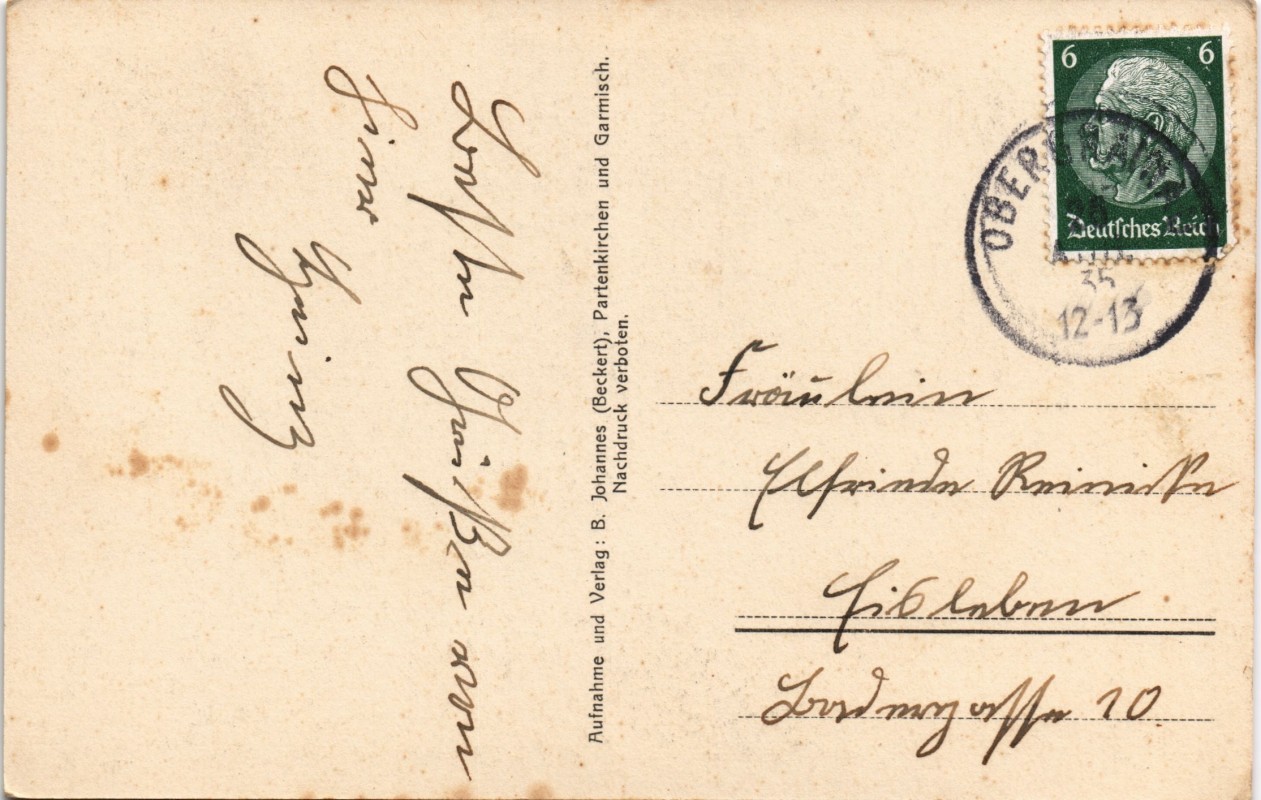 Besten Grüßen von
Deine
Heinz
Aufnahme und Verlag: B. Johannes (Beckert), Partenkirchen und Garmisch.
Nachdruck verboten.
6 6
Deutsches Reich
35
12-13
Fräulein
Elfriede Reinicke
Eisleben
Badergasse 10.